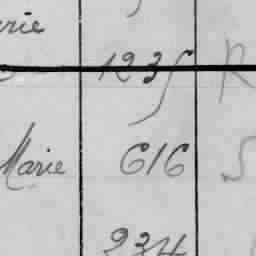 rie
123
Marie 616 S
234